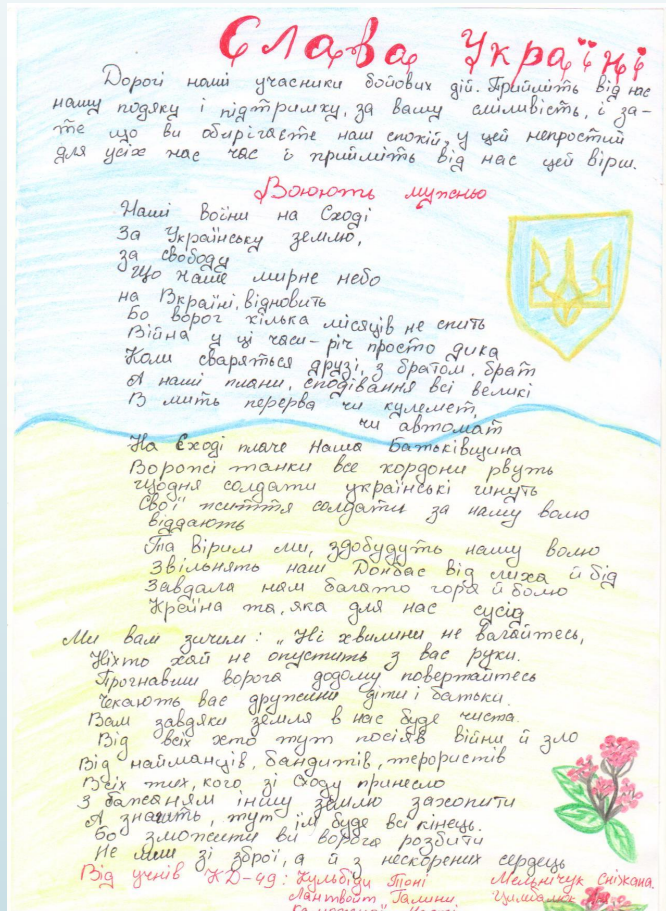 Слава Україні
Дорогі наші учасники бойових дій. Прийміть від нас
нашу подяку і підтримку, за вашу сміливість, і за-
те що ви обирігаєте наш спокій, у цей непростий
для усіх нас час і прийміть від нас цей вірш.
Воюють мужньо
Наші воїни на Сході
За Українську землю,
за свободу
Що наше мирне небо
на Вкраїні, відновить
Бо ворог кілька місяців не спить
Війна у ці часи-річ просто дика
Коли сваряться друзі, з братом, брат
А наші плани, сподівання всі великі
В мить перерва чи кулемет,
чи автомат
На Сході плаче Наша Батьківщина
Ворожі танки все кордони рвуть
Щодня солдати українські гинуть
Свої життя солдати за нашу волю
віддають
Та вірим ми, здобудуть нашу волю
Звільнять наш Донбас від лиха й бід
Завдала нам багато горя й болю
Країна та, яка для нас сусід
Ми вам зичим: „Ні хвилини не вагайтесь,
Ніхто хай не опустить з вас руки.
Прогнавши ворога додому повертайтесь
Чекають вас дружини діти і батьки.
Вам завдяки земля в нас буде чиста.
Від всіх хто тут посіяв війни й зло
Від найманців, бандитів, терористів
Всіх тих, кого зі Сходу принесло
З бажаням іншу землю захопити
А значить, тут їм буде всі кінець.
Бо зможите ви ворога розбити
Не лиш зі зброї, а й з нескорених сердець
Від учнів КД-49: Кульбіди Тоні Мельнічук Сніжана.
Лантвойт Галини Цимбалюк